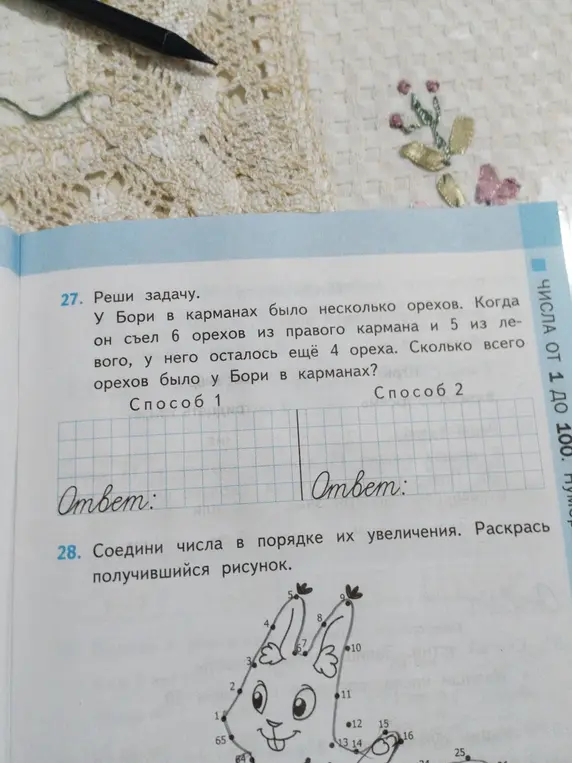 27. Реши задачу.
У Бори в карманах было несколько орехов. Когда
он съел 6 орехов из правого кармана и 5 из ле-
вого, у него осталось ещё 4 ореха. Сколько всего
орехов было у Бори в карманах?
Способ 1
Способ 2
Ответ:
Ответ:
28. Соедини числа в порядке их увеличения. Раскрась
получившийся рисунок.
5
9
4
8
6
7
3
10
2
11
1
12
15
16
65
13
14
64
25
ЧИСЛА ОТ 1 ДО 100.